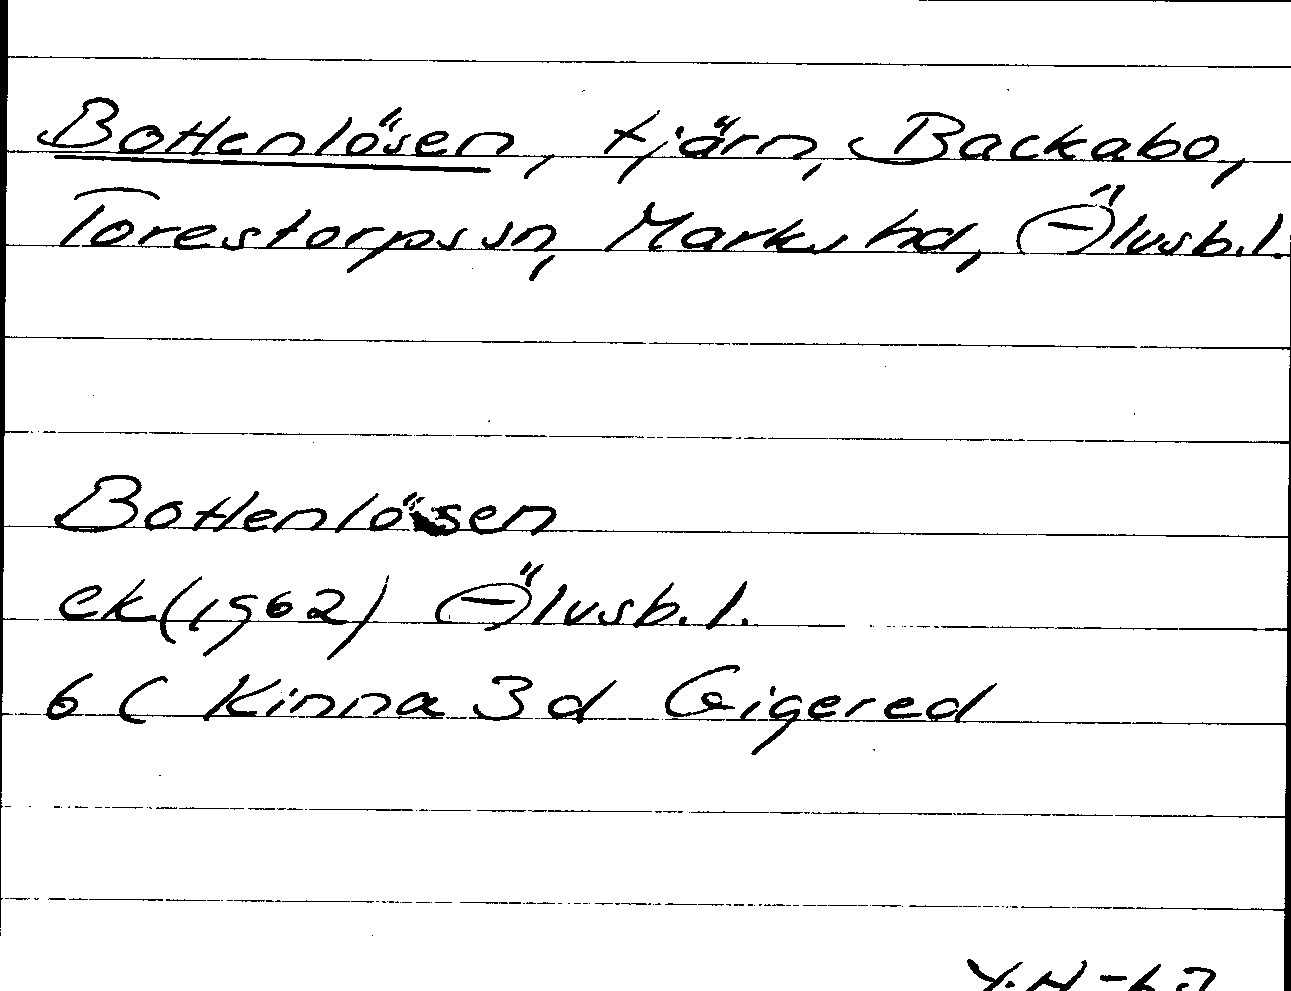 Bottenlösen, tjärn, Backabo,
Torestorps sn, Marks hd, Älvsb.l.
Bottenlösen
ek(1962) Älvsb.l.
6 C Kinna 3 d Gigered